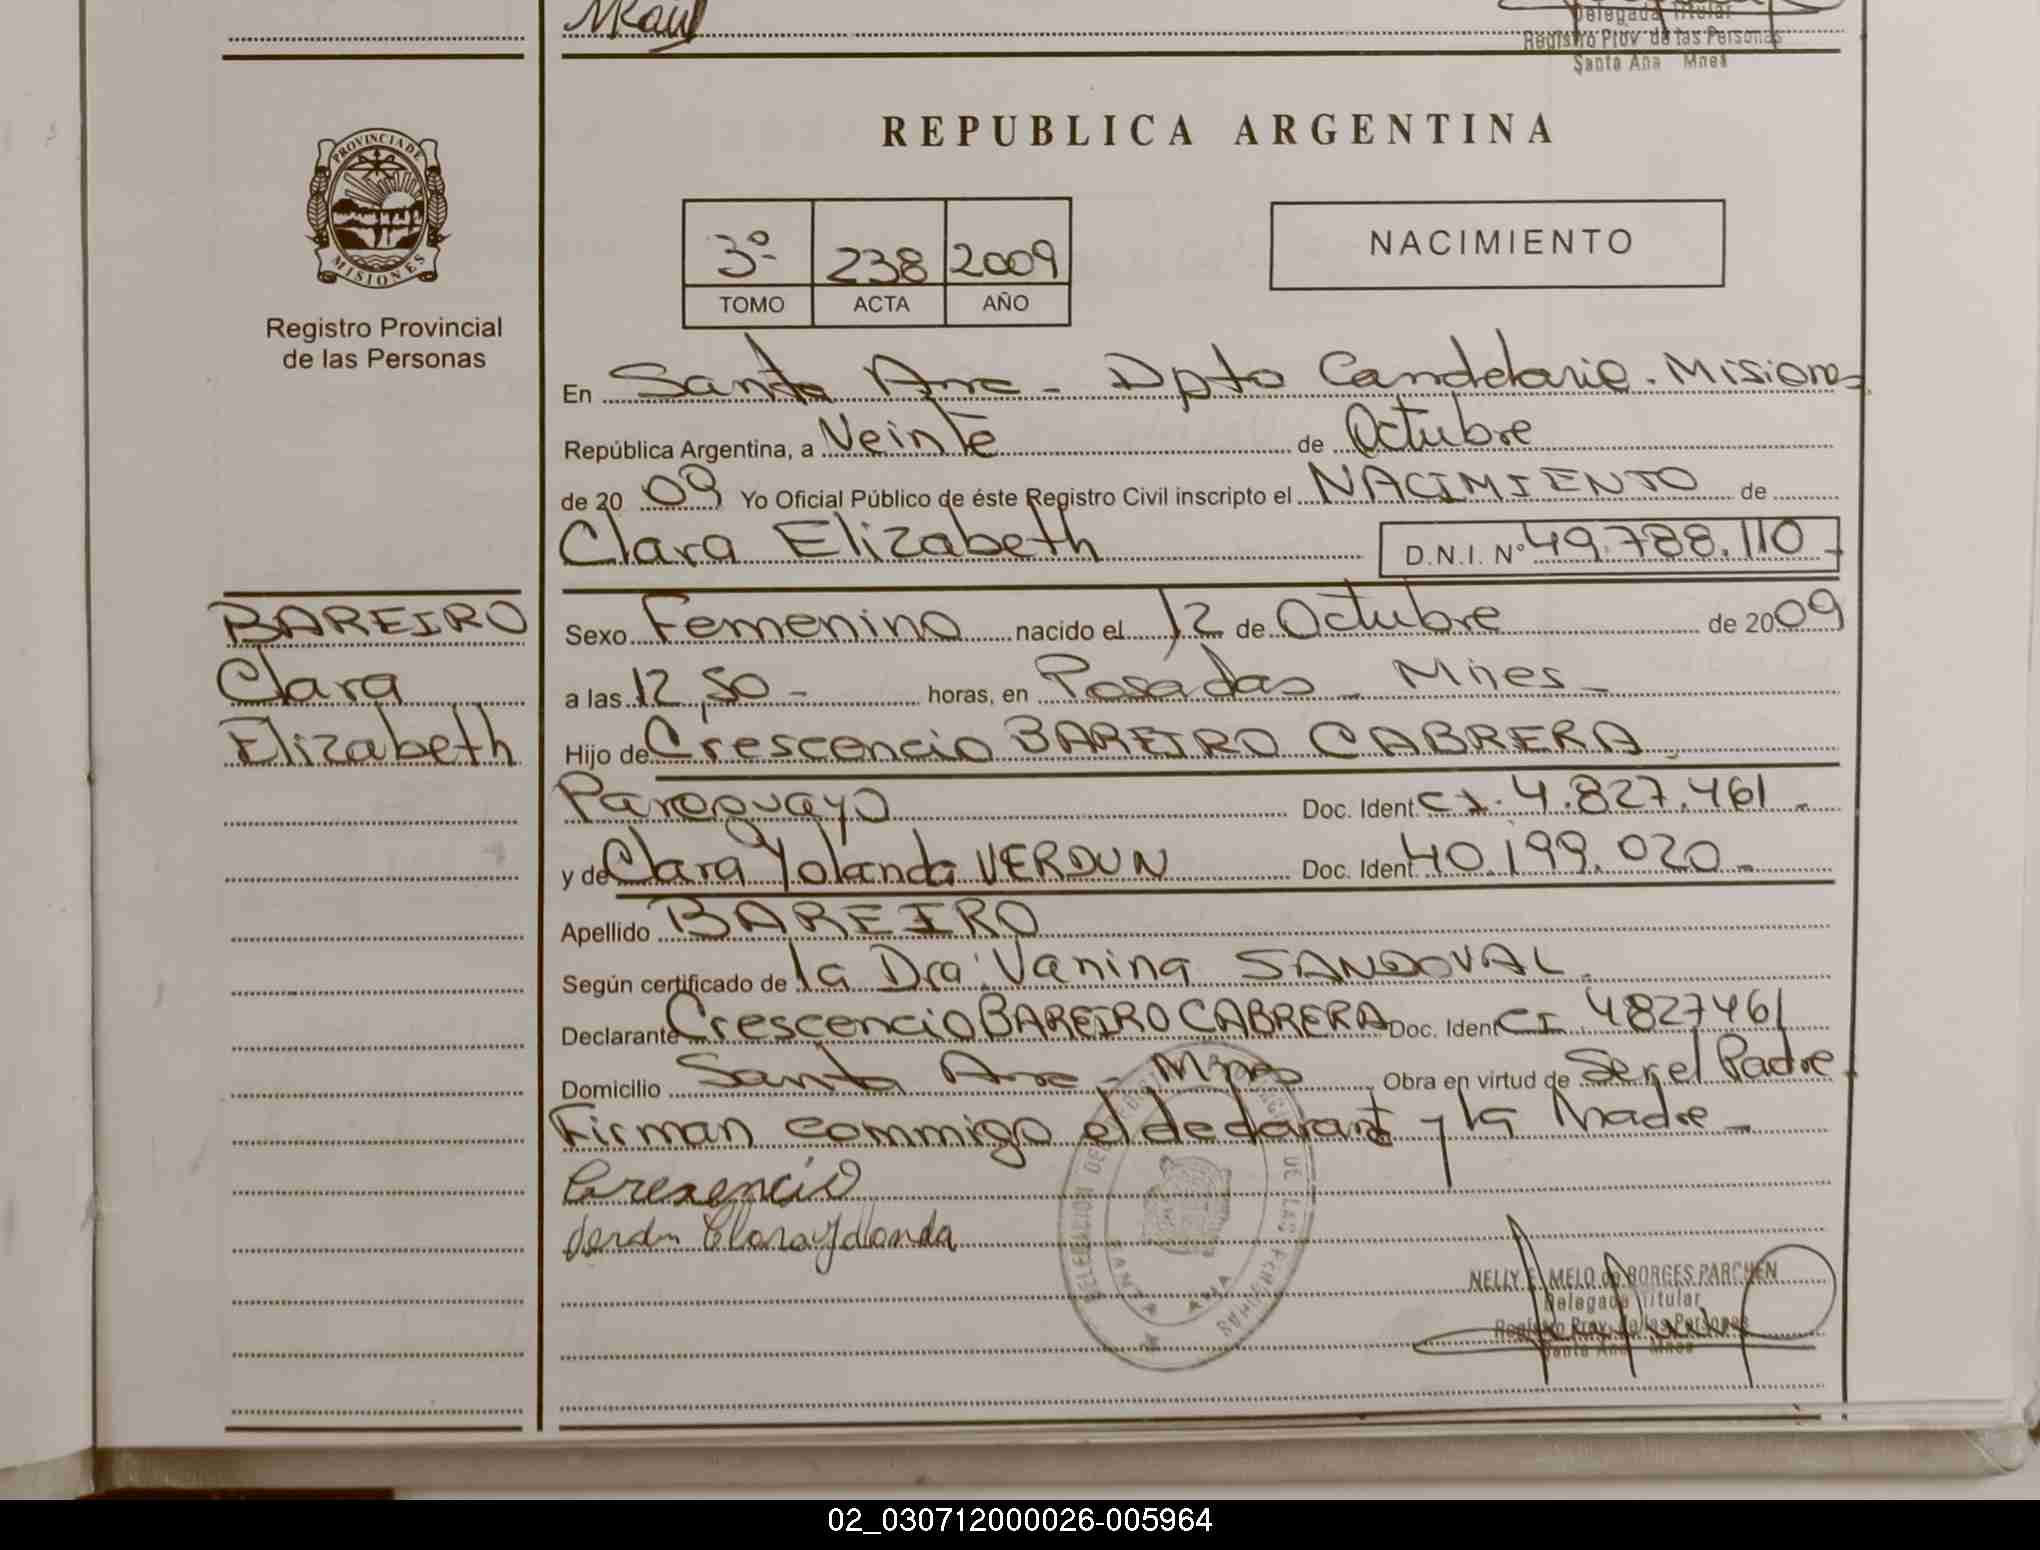 Raúl
Delegada Titular
Registro Prov. de las Personas
Santa Ana Mnes
PROVINCIA DE
MISIONES
Registro Provincial
de las Personas
REPUBLICA ARGENTINA
3º 238 2009
TOMO ACTA AÑO
NACIMIENTO
En Santa Ana - Dpto Candelaria - Misiones
República Argentina, a Veinte de Octubre
de 2009 Yo Oficial Público de éste Registro Civil inscripto el NACIMIENTO de
Clara Elizabeth D.N.I. Nº 49.788.110 -
BAREIRO
Clara
Elizabeth
Sexo Femenino nacido el 12 de Octubre de 2009
a las 12,50 - horas, en Posadas - Mnes -
Hijo de Crescencio BAREIRO CABRERA
Paraguayo Doc. Ident. CI. 4.827.461 -
y de Clara Yolanda VERDUN Doc. Ident. 40.199.020 -
Apellido BAREIRO
Según certificado de la Dra. Vanina SANDOVAL
Declarante Crescencio BAREIRO CABRERA Doc. Ident. CI 4827461
Domicilio Santa Ana - Mnes Obra en virtud de Ser el Padre
Firman commigo el declarant y la Madre -
Cresencio
Verdun Clara Yolanda
DELEGACION DEL REGISTRO PROVINCIAL DE LAS PERSONAS
SANTA ANA
NELLY E. MELO de BORGES PARCHEN
Delegada Titular
Registro Prov. de las Personas
Santa Ana Mnes
02_030712000026-005964